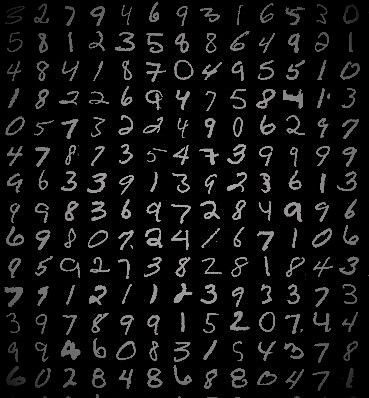 3 2 7 9 4 6 9 3 1 6 5 3 0
5 8 1 2 3 5 8 8 6 4 9 2 1
4 8 4 1 8 7 0 4 9 5 5 1 0
1 8 2 2 6 9 4 7 5 8 4 1 3
0 5 7 3 2 2 4 9 0 6 2 9 7
4 7 8 7 3 5 4 7 3 9 9 9 9
9 6 3 3 9 1 3 9 2 3 6 1 3
9 9 8 3 6 9 7 2 8 4 9 9 6
6 9 8 0 7 2 4 1 6 7 1 0 6
9 5 9 2 7 3 8 2 8 1 8 4 3
7 9 1 2 1 1 2 3 9 3 3 7 3
3 9 7 8 9 9 1 5 2 0 7 4 4
9 9 4 6 0 8 3 1 5 4 3 7 8
6 0 2 8 4 8 6 8 8 0 4 7 1